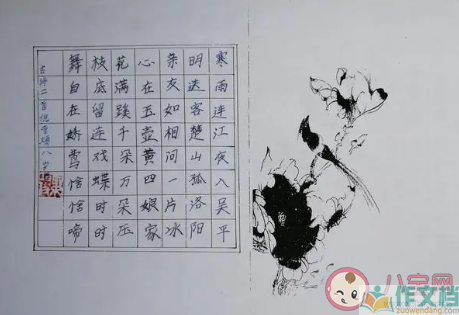 寒雨连江夜入吴平
明送客楚山孤洛阳
亲友如相问一片冰
心在玉壶黄四娘家
花满蹊千朵万朵压
枝底留连戏蝶时时
舞自在娇莺恰恰啼
古诗二首 八岁
作文档
www.zuowendang.com